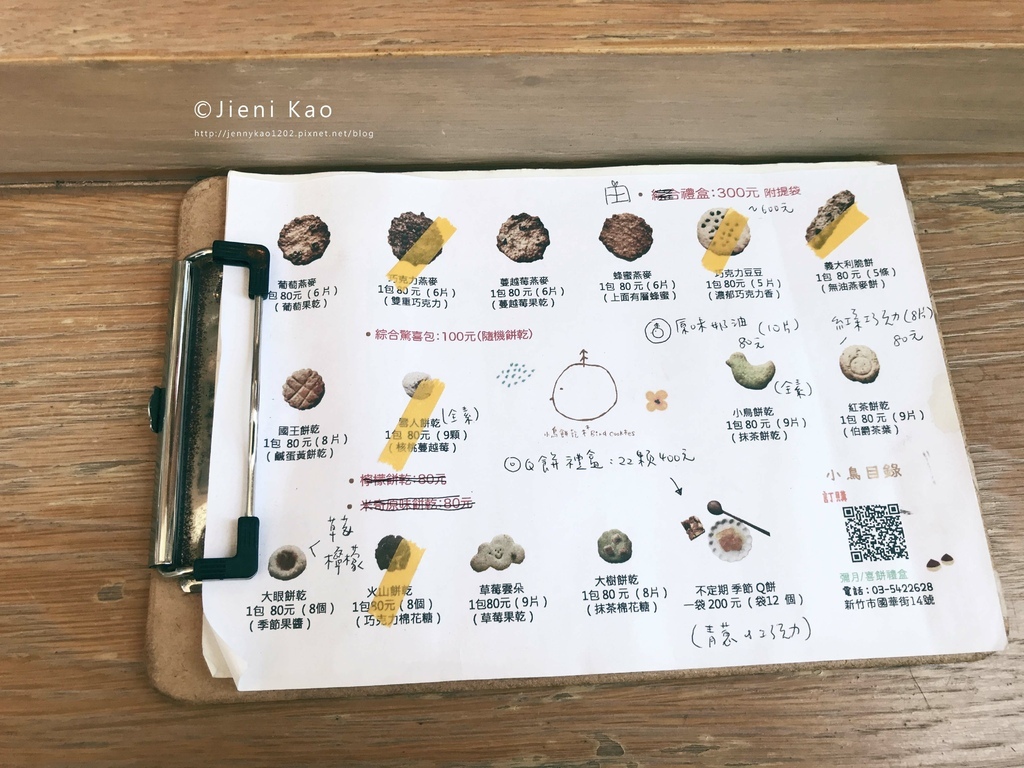 ©Jieni Kao
http://jennykao1202.pixnet.net/blog
• 綜合禮盒:300元 附提袋
~600元
葡萄燕麥
包 80元 (6片)
(葡萄果乾)
巧克力燕麥
1包 80元 (6片)
(雙重巧克力)
蔓越莓燕麥
1包 80元 (6片)
(蔓越莓果乾)
蜂蜜燕麥
1包 80元 (6片)
(上面有層蜂蜜)
巧克力豆豆
1包 80元 (5片)
(濃郁巧克力香)
義大利脆餅
1包 80元 (5條)
(無油燕麥餅)
• 綜合驚喜包:100元(隨機餅乾)
原味奶油 (10片)
80元
紅茶巧克力(8片)
80元
國王餅乾
1包 80元(8片)
(鹹蛋黃餅乾)
雪人餅乾 (全素)
1包 80元 (9顆)
(核桃蔓越莓)
小鳥餅乾 Bird cookies
小鳥餅乾 (全素)
1包 80元 (9片)
(抹茶餅乾)
紅茶餅乾
1包 80元 (9片)
(伯爵茶葉)
◎Q餅禮盒:22顆400元
• 檸檬餅乾:80元
• 米奇原味餅乾:80元
小鳥目錄
草莓
檸檬
大眼餅乾
1包 80元 (8個)
(季節果醬)
火山餅乾
1包 80元 (8個)
(巧克力棉花糖)
草莓雲朵
1包80元 (9片)
(草莓果乾)
大樹餅乾
1包 80元 (8片)
(抹茶棉花糖)
不定期 季節 Q餅
一袋 200元 (袋12 個)
(青蔥 巧克力)
彌月/喜餅禮盒
電話:03-5422628
新竹市國華街14號